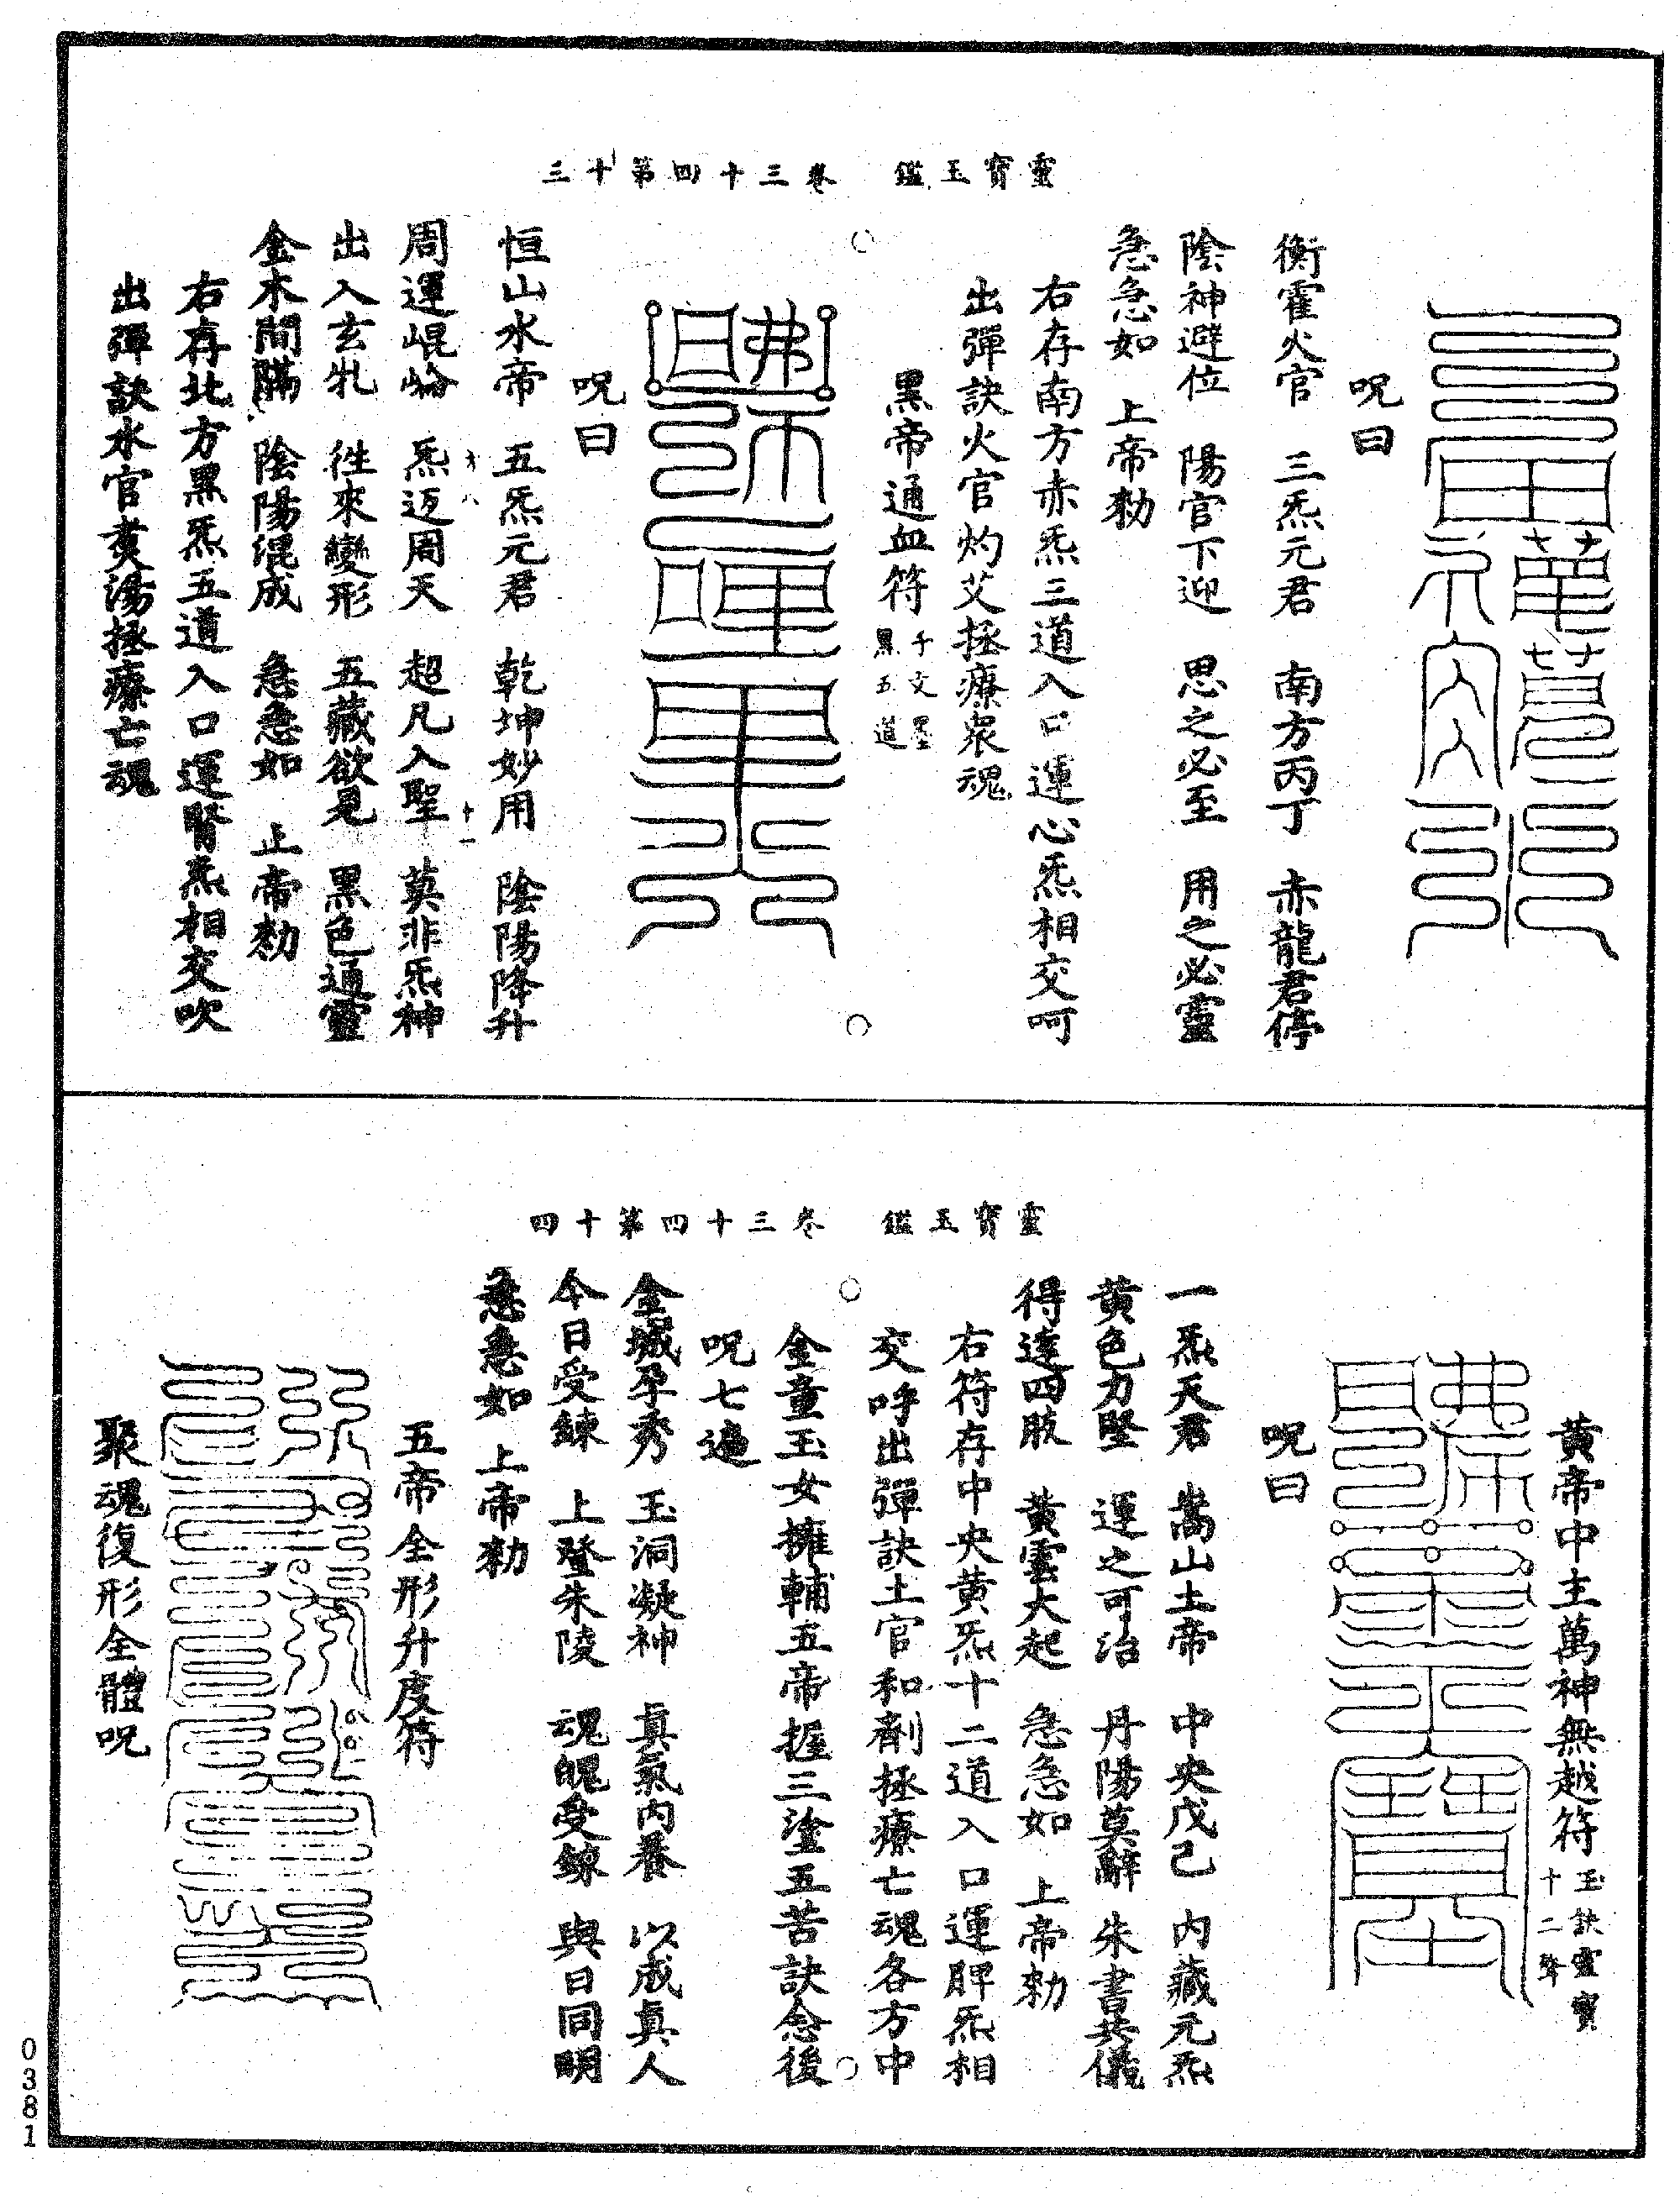 靈寶玉鑑　卷三十四第十三
呪曰
衡霍火官　三炁元君　南方丙丁　赤龍君停
陰神避位　陽官下迎　思之必至　用之必靈
急急如　上帝勑
右存南方赤炁三道入口運心炁相交呵
出彈訣火官灼艾拯療衆魂
黑帝通血符子文墨黑五道
呪曰
恒山水帝　五炁元君　乾坤妙用　陰陽降升
周運崐崘　炁迈周天　超凡入聖　莫非炁神
出入玄牝　徃來變形　五藏欲見　黑色通靈
金木間隔　陰陽混成　急急如　上帝勑
右存北方黑炁五道入口運腎炁相交吹
出彈訣水官煑湯拯療亡魂
靈寶玉鑑　卷三十四第十四
黃帝中主萬神無越符玉訣靈寶十二聲
呪曰
一炁天君　嵩山土帝　中央戊己　內藏元炁
黃色力堅　運之可治　丹陽莫辭　朱書共儀
得達四肢　黃雲大起　急急如　上帝勑
右符存中央黃炁十二道入口運脾炁相
交呼出彈訣土官和劑拯療亡魂各方中
金童玉女擁輔五帝握三塗五苦訣念後
呪七遍
金城孕秀　玉洞凝神　真氣內養　以成真人
今日受鍊　上登朱陵　魂魄受鍊　與日同明
急急如　上帝勑
五帝全形升度符
聚魂復形全體呪
0381